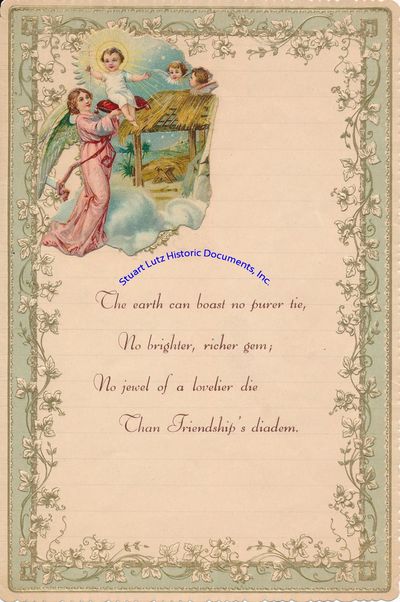 Stuart Lutz Historic Documents, Inc.
The earth can boast no purer tie,
No brighter, richer gem;
No jewel of a lovelier die
Than Friendship's diadem.